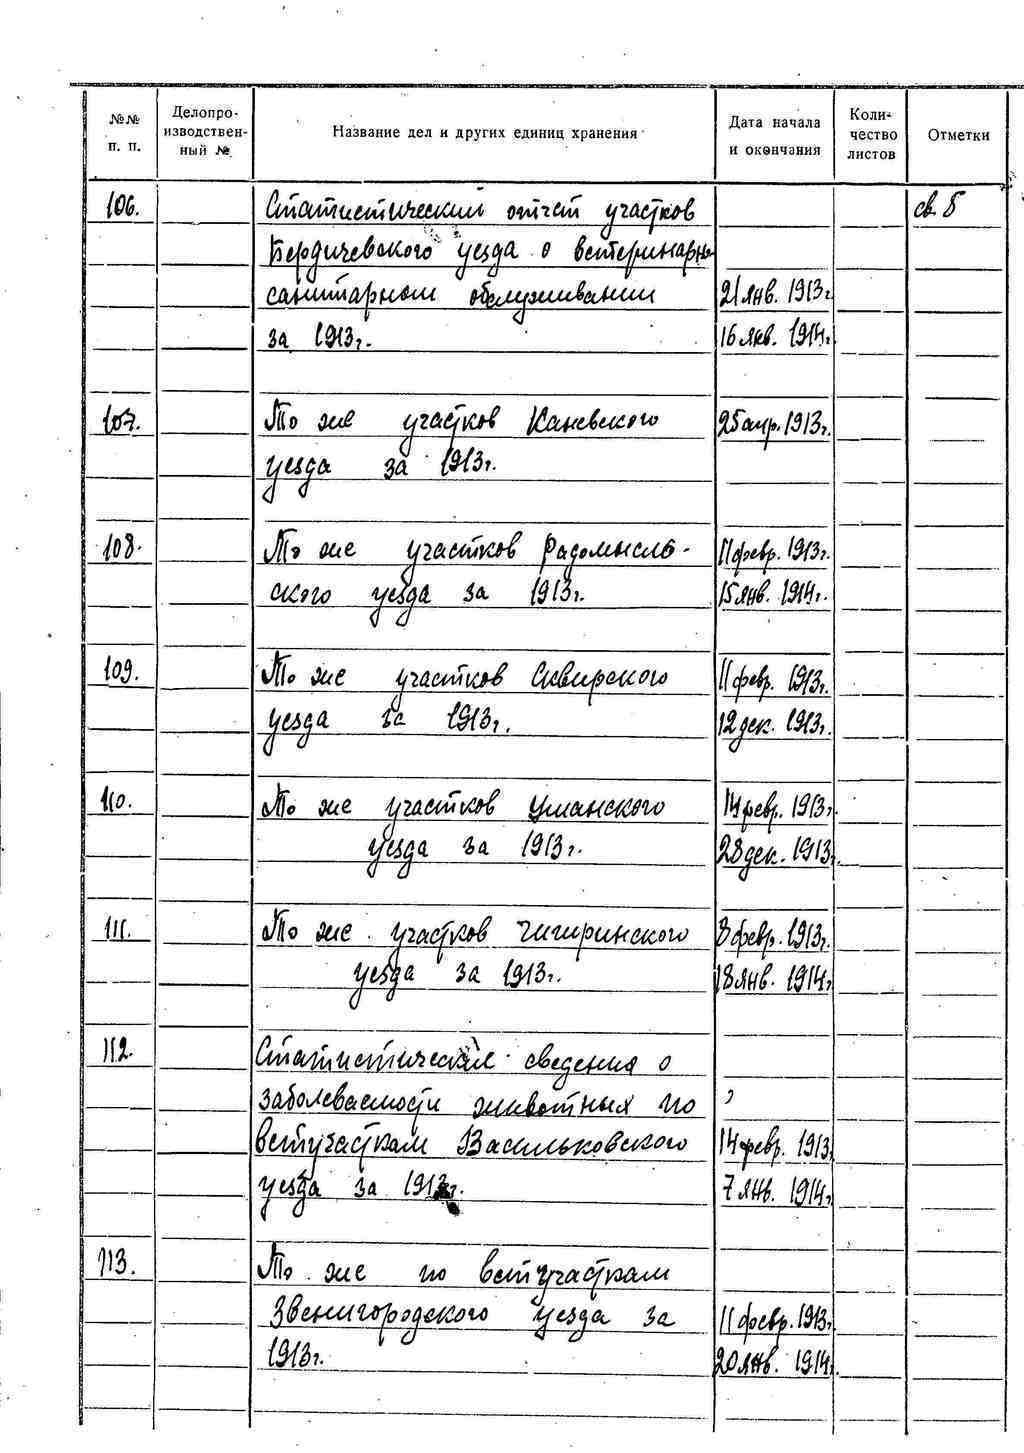 №№ п. п.
Делопро-
изводствен-
ный №
Название дел и других единиц хранения
Дата начала
и окончания
Коли-
чество
листов
Отметки
106. Статистический отчет участков св. 8
Бердичевского уезда о ветеринарно
санитарном обслуживании 21 янв. 1913г.
за 1913г. 16 янв. 1914г.
107. То же участков Каневского 25 апр. 1913г.
уезда за 1913г.
108. То же участков Радомысль- 11 февр. 1913г.
ского уезда за 1913г. 15 янв. 1914г.
109. То же участков Сквирского 11 февр. 1913г.
уезда за 1913г. 12 дек. 1913г.
110. То же участков Уманского 14 февр. 1913г.
уезда за 1913г. 28 дек. 1913г.
111. То же участков Чигиринского 8 февр. 1913г.
уезда за 1913г. 18 янв. 1914г.
112. Статистические сведения о
заболеваемости животных по
ветучасткам Васильковского 14 февр. 1913
уезда за 1913г. 7 янв. 1914г.
113. То же по ветучасткам
Звенигородского уезда за 11 февр. 1913г.
1913г. 20 янв. 1914г.